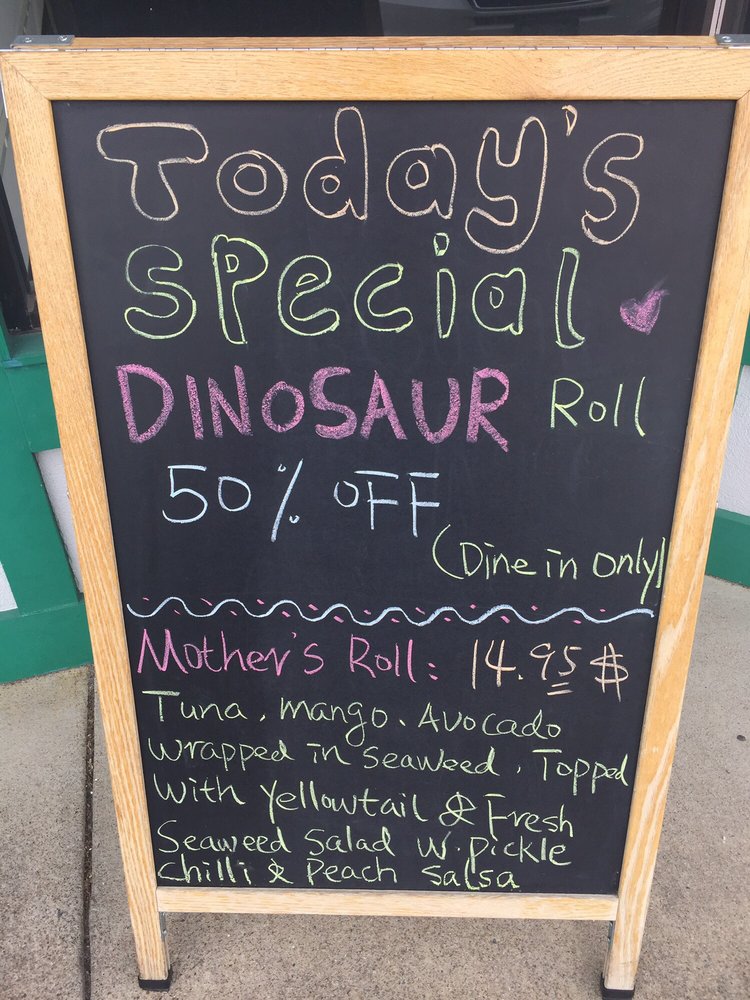 Today's
Special
DINOSAUR Roll
50% OFF
(Dine in only)
Mother's Roll: 14.95 $
Tuna, mango, Avocado
wrapped in seaweed, Topped
with yellowtail & Fresh
Seaweed Salad w. pickle
chilli & Peach salsa